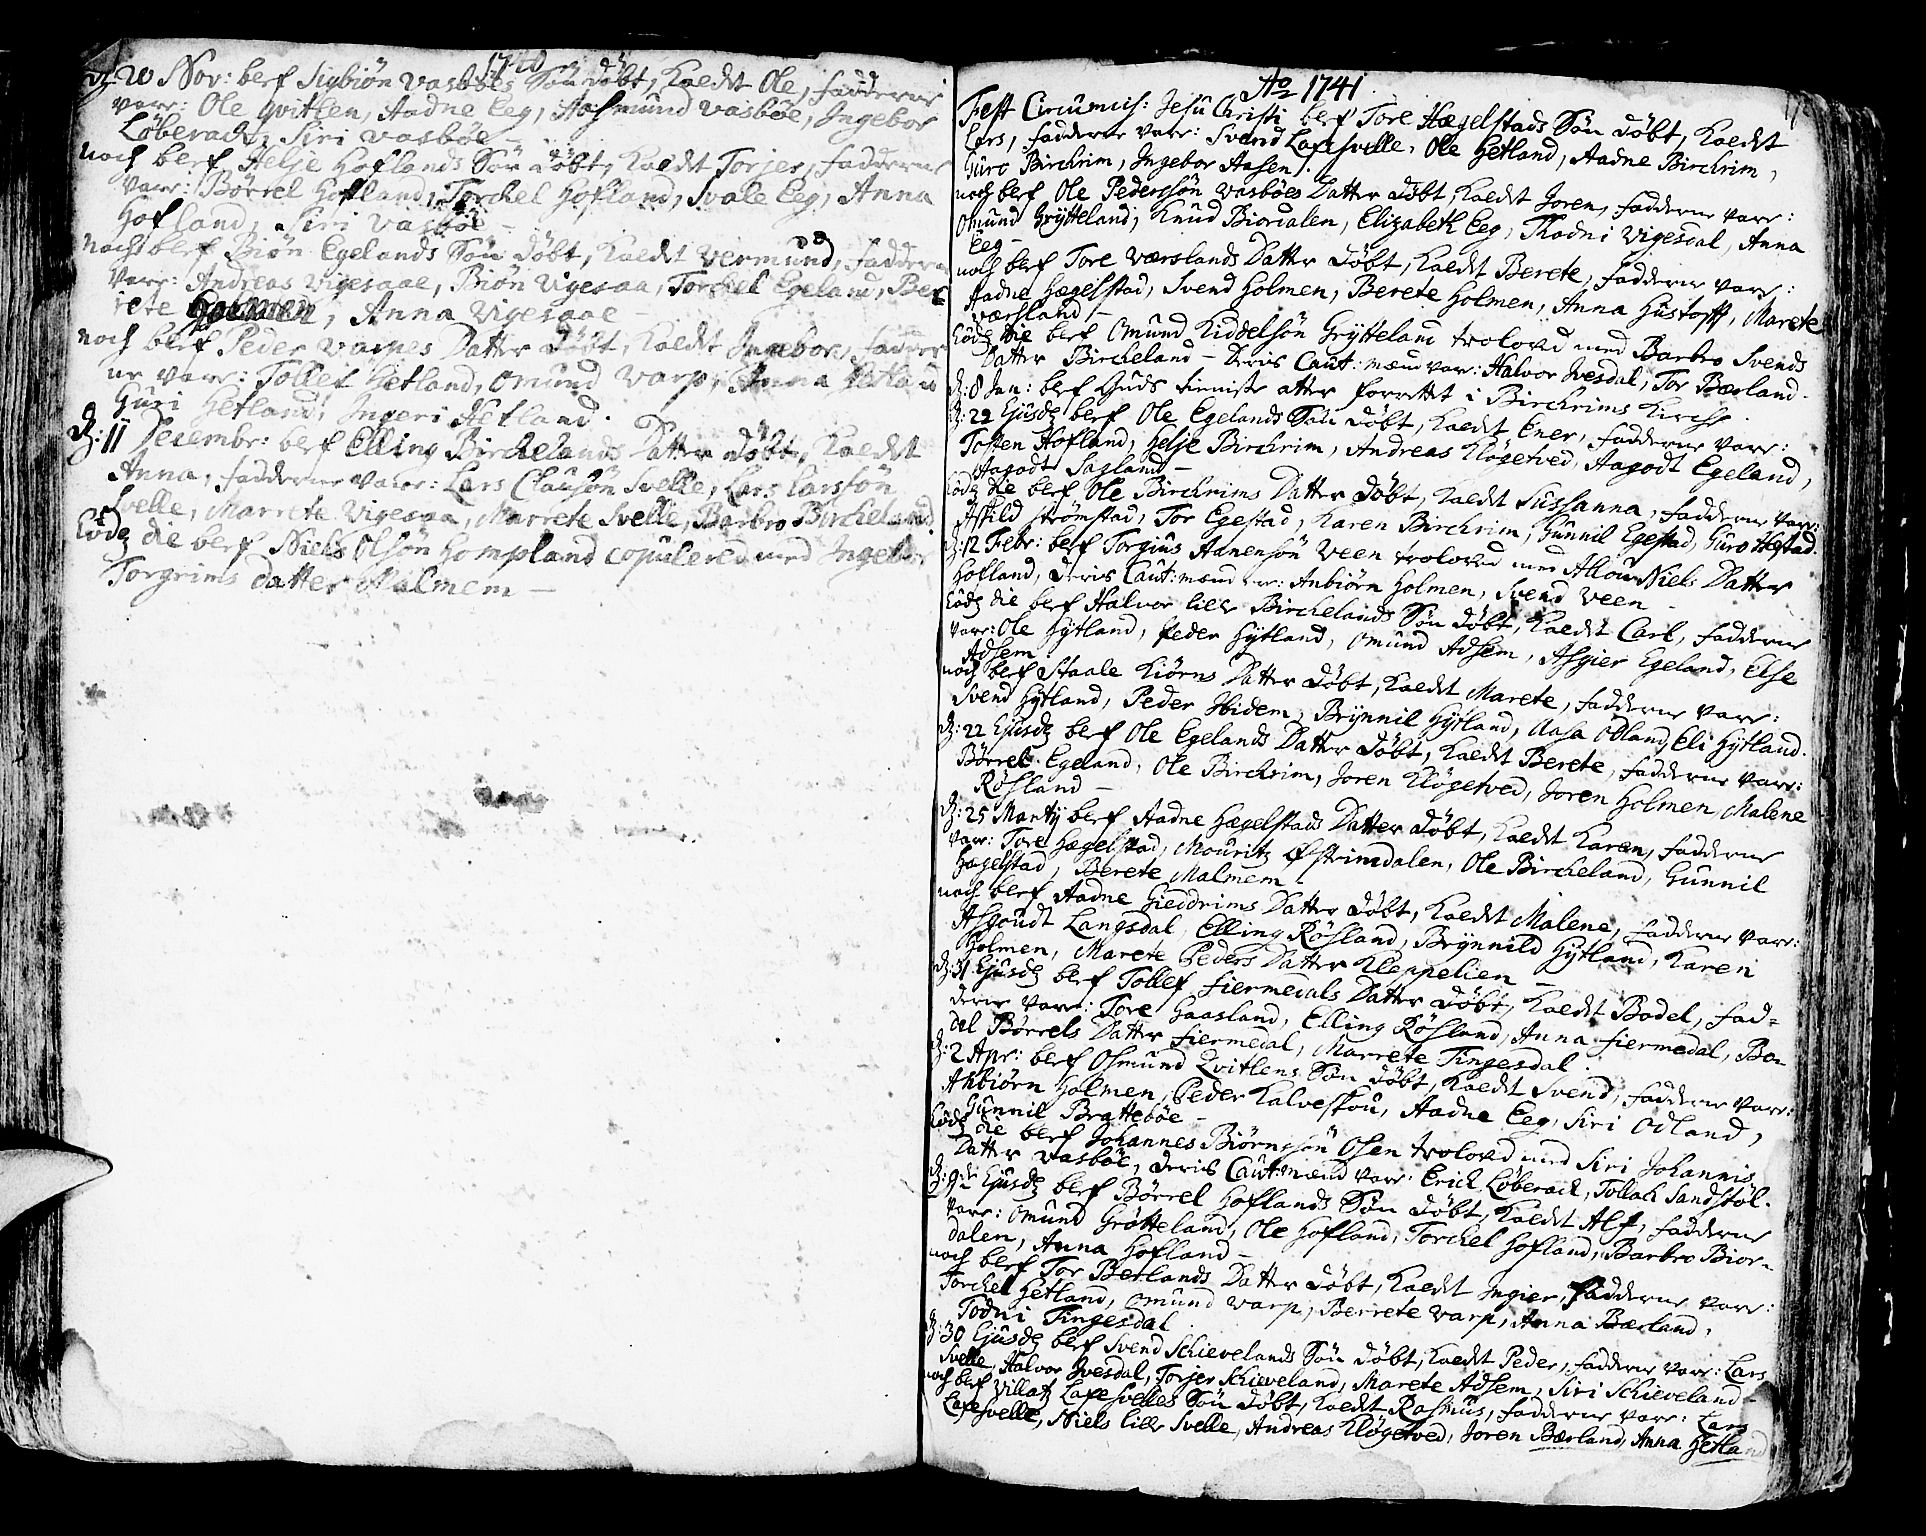 1740
d: 20 Nov: bef Sigbiön Vasböes Sön döbt, kaldt Ole, fadderne
vare: Ole Qvitlen, Aadne Eeg, Aasmund Vasböe, Ingebor
Löberack, Siri Vasböe –
noch bef Helje Hoflands Sön döbt, kaldt Torjer, fadderne
vare: Börrel Hofland, Torchel Hofland, Svale Eeg, Anna
Hofland, Siri Vasböe –
noch bef Biön Egelands Sön döbt, kaldt Vermund, faddern
vare: Andreas Vigesaae, Biön Vigesaa, Torchel Egeland, Be
rete Holmen, Anna Vigesaae
noch bef Peder Varpes Datter döbt, kaldt Ingebor, fadder
ne vare: Tollef Hetland, Omund Varp, Anna Hetland
Guri Hetland, Ingeri Hetland.
d: 11 Desembr: bef Elling Birchelands Datter döbt, kaldt
Anna, fadderne vare: Lars Clausön Svelle, Lars Larssön
Svelle, Marrete Vigesaa, Marrete Svelle, Barbro Bircheland
Eodg die bef Niels Olsön Hompland copulered med Ingebor
Torgrims datter Malmem –
Ao 1741.
Fest Circumcis: Jesu Christi bef Tore Hægelstads Sön döbt, kaldt
Lars, fadderne vare: Svend Laxesvelle, Ole Hetland, Aadne Birchrim,
Guro Birchrim, Ingebor Aasen.
noch bef Ole Pedersön Vasböes Datter döbt, kaldt Joren, fadderne vare:
Omund Grytteland, Knud Biordalen, Elizabeth Eeg, Thodni Vigesdal, Anna
Eeg –
noch bef Tore Værslands Datter döbt, kaldt Berete, fadderne vare:
Aadne Hægelstad, Svend Holmen, Berete Holmen, Anna Hustoft, Marete
Værsland –
Eodg die bef Omund Kiddelsön Grytteland trolovd med Barbro Svends
Datter Bircheland – deris Caut: mænd vare: Halvor Ivesdal, Tor Bærland.
d: 8 Jan: bef Guds tieniste atter forrettet i Birchrims Kirche.
d: 22 Ejusdg bef Ole Egelands Sön döbt, kaldt Ener, fadderne vare:
Tosten Hofland, Helje Birchrim, Andreas Klögetved, Aagodt Egeland,
Aagodt Sagland –
Eodg die bef Ole Birchrims Datter döbt, kaldt Sussanna, fadderne vare:
Askild Strömstad, Tor Egestad, Karen Birchrim, Gunnil Egestad, Guro Hestad.
d: 12 Febr: bef Torgius Aanensön Veen trolovd med Allou Niels Datter
Hofland, deris Caut: mænd var: Anbiörn Holmen, Svend Veen –
Eodg die bef Halvor lille Birchelands Sön döbt, kaldt Carl, fadderne
vare: Ole Hytland, Peder Hytland, Omund Adsem, Asgier Egeland, Else
Adsem.
noch bef Staale Kiörns Datter döbt, kaldt Marete, fadderne vare:
Svend Hytland, Peder Ibidem, Brynnil Hytland, Aasa Odland, Eli Hytland.
d: 22 Ejusdg bef Ole Egelands Datter döbt, kaldt Berete, fadderne vare:
Börrel Egeland, Ole Birchrim, Joren Klögetved, Joren Holmen, Malene
Rösland –
d: 25 Martij bef Aadne Hægelstads Datter döbt, kaldt Karen, fadderne
var: Tore Hægelstad, Mouritz Östrimdalen, Ole Bircheland, Gunnil
Hagelstad, Berete Malmem –
noch bef Aadne Gieddrims Datter döbt, kaldt Malene, fadderne vare:
Asgoudt Langsdal, Elling Rösland, Brynnild Hytland, Karen
Holmen, Marete Peders Datter Kleppelien –
d: 31 Ejusdg bef Tollef Fiermedals Datter döbt, kaldt Bodel, fad=
derne vare: Tore Gaasland, Elling Rösland, Anna Fiermedal, Bo-
del Börrels Datter Fiermedal, Marrete Tingesdal.
d: 2 Apr: bef Osmund Qvitlens Sön döbt, kaldt Svend, fadderne vare:
Anbiörn Holmen, Peder Kalveskou, Aadne Eeg, Siri Odland,
Gunnil Bratteböe –
Eodg die bef Johannes Biörnssön Olsen trolovd med Siri Johannis
Datter Vasböe, deris Caut: mænd vare: Erick Löberack, Tollach Sandstöl.
d: 9di Ejusdg bef Börrel Hoflands Sön döbt, kaldt Alf, fadderne
vare: Omund Grötteland, Ole Hofland, Torchel Hofland, Barbro Bior-
dalen, Anna Hofland –
noch bef Tor Berlands Datter döbt, kaldt Ingier, fadderne vare:
Torchel Hetland, Omund Varp, Berrete Varp, Anna Bærland,
Todni Tingesdal.
d: 30 Ejusdg bef Svend Schievelands Sön döbt, kaldt Peder, fadderne vare: Lars
Svelle, Halvor Ivesdal, Torjer Schieveland, Marete Adsem, Siri Schieveland –
noch bef Villatz Laxesvelles Sön döbt, kaldt Rasmus, fadderne vare: Lars
Laxesvelle, Niels lille Svelle, Andreas Klögetved, Joren Bærland, Anna Hetland